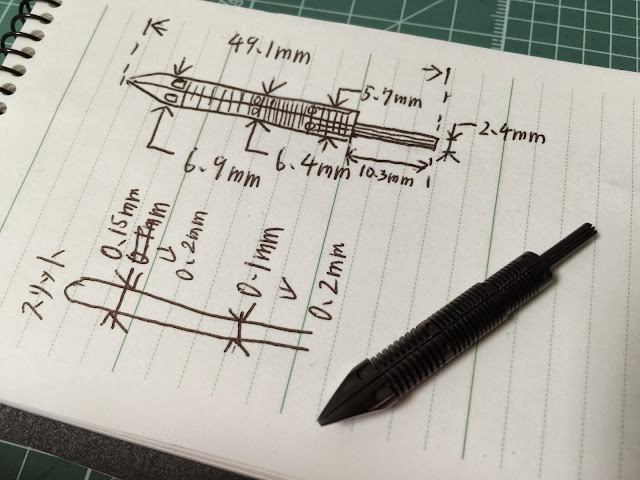 49.1mm
5.7mm
2.4mm
6.9mm
6.4mm
10.3mm
スリット
0.15mm
0.2mm
0.1mm
0.2mm